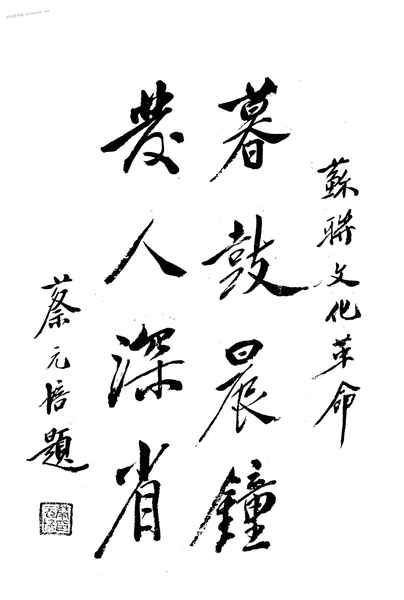 蘇聯文化革命
暮鼓晨鐘
發人深省
蔡元培題